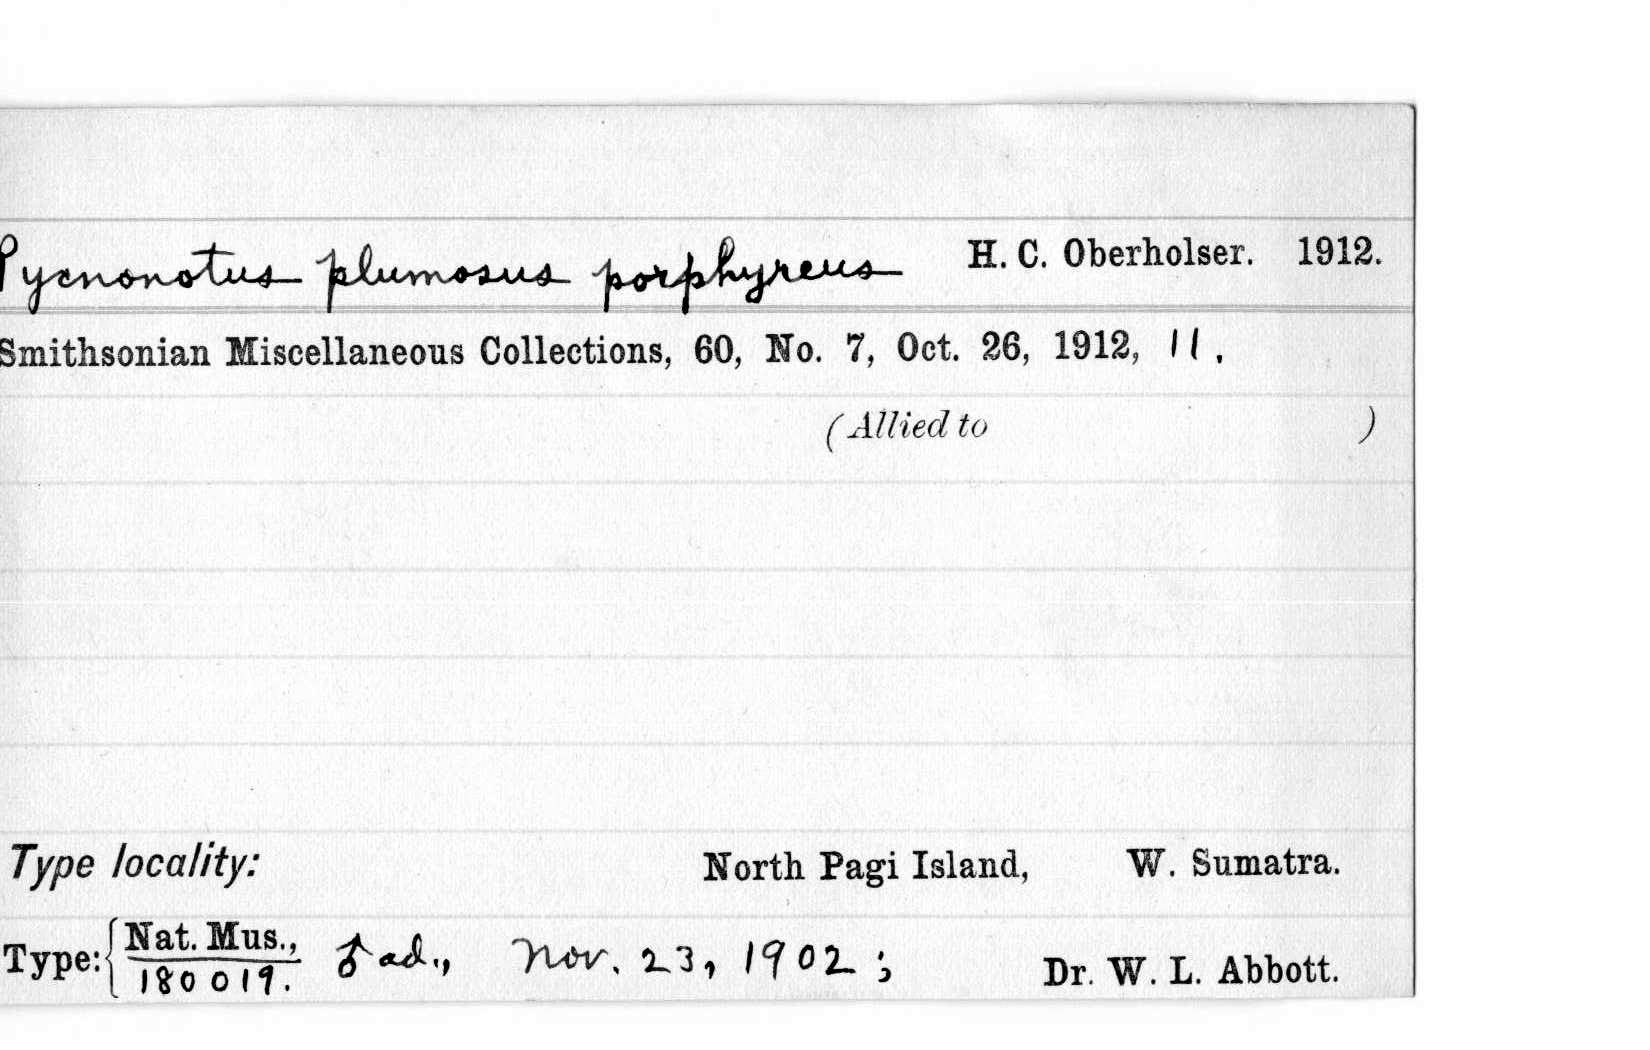 Pycnonotus plumosus porphyreus H. C. Oberholser. 1912.
Smithsonian Miscellaneous Collections, 60, No. 7, Oct. 26, 1912, 11.
(Allied to )
Type locality: North Pagi Island, W. Sumatra.
Type: { Nat. Mus.,
180019. ♂ ad., Nov. 23, 1902; Dr. W. L. Abbott.